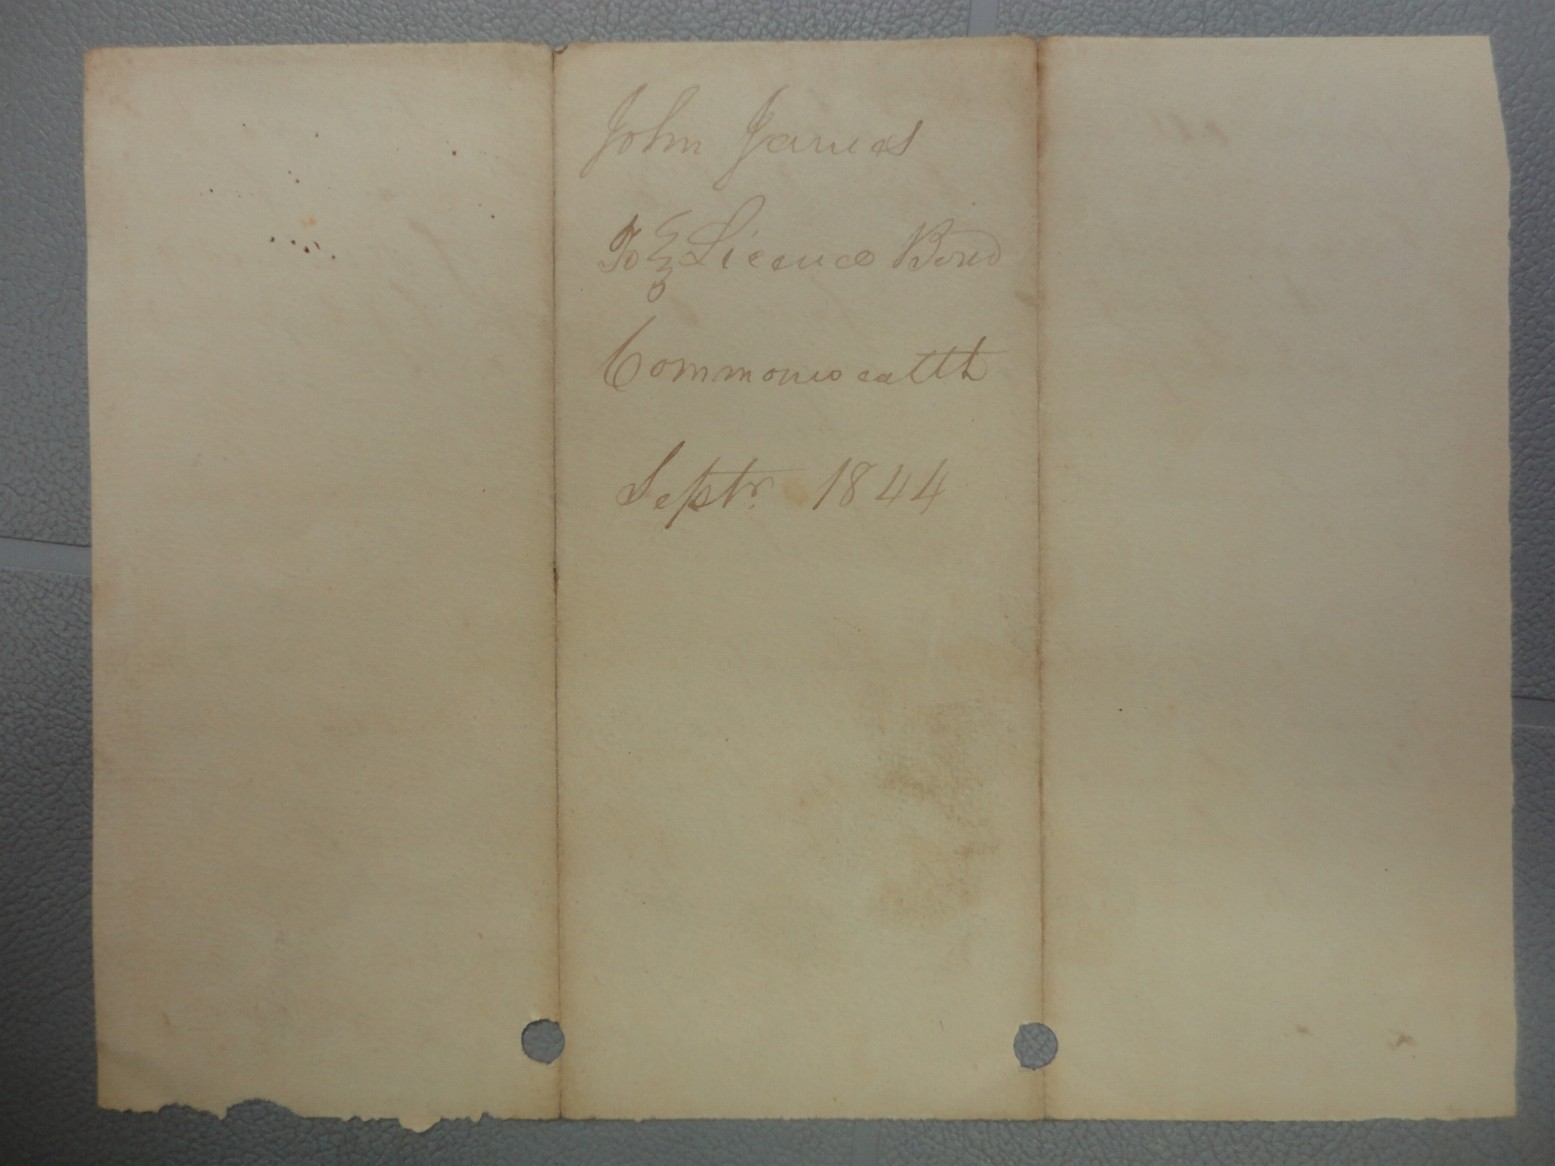 John James
To } Licence Bond
Commonwealth
Septr. 1844